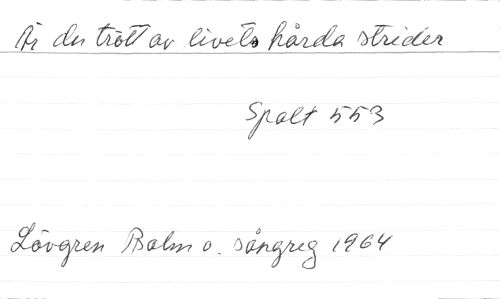 Är du trött av livets hårda strider
Spalt 553
Lövgren Psalm o. sångreg 1964